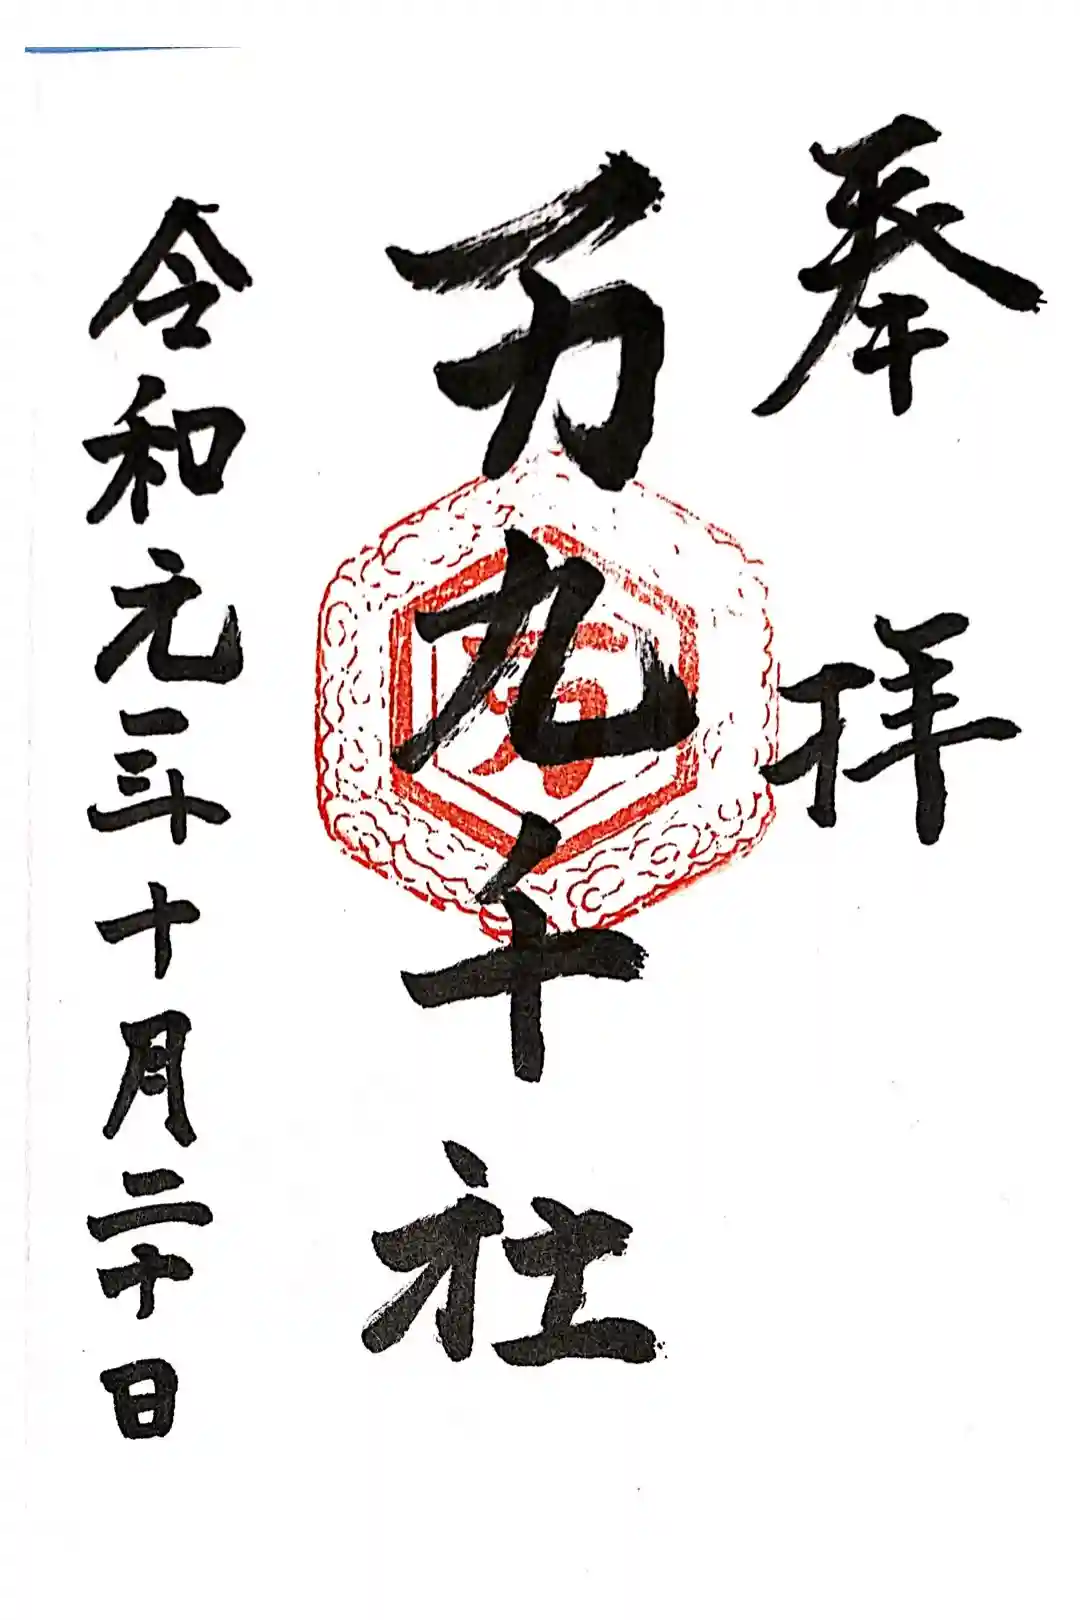 奉拝
万九千社
万
令和元年十月二十日